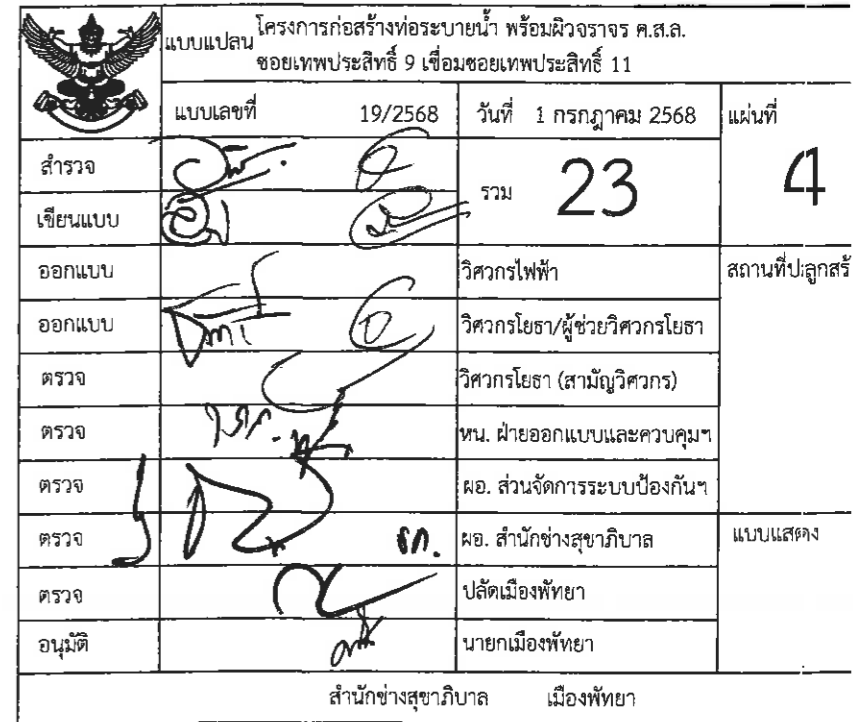 แบบแปลน โครงการก่อสร้างท่อระบายน้ำ พร้อมผิวจราจร ค.ส.ล.
ซอยเทพประสิทธิ์ 9 เชื่อมซอยเทพประสิทธิ์ 11
แบบเลขที่ 19/2568 วันที่ 1 กรกฎาคม 2568 แผ่นที่
สำรวจ
รวม 23 4
เขียนแบบ
ออกแบบ วิศวกรไฟฟ้า สถานที่ปลูกสร้
ออกแบบ วิศวกรโยธา/ผู้ช่วยวิศวกรโยธา
ตรวจ วิศวกรโยธา (สามัญวิศวกร)
ตรวจ หน. ฝ่ายออกแบบและควบคุมฯ
ตรวจ ผอ. ส่วนจัดการระบบป้องกันฯ
ตรวจ รก. ผอ. สำนักช่างสุขาภิบาล แบบแสดง
ตรวจ ปลัดเมืองพัทยา
อนุมัติ นายกเมืองพัทยา
สำนักช่างสุขาภิบาล เมืองพัทยา